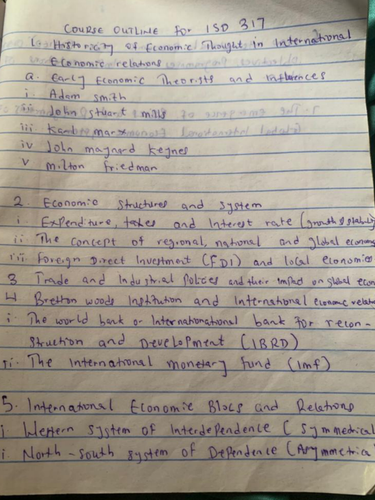 COURSE OUTLINE FOR ISD 317
1. Historicity of Economic Thought in International
Economic relations
a. Early Economic Theorists and influences
i Adam Smith
ii John Stuart mills
iii Karl marx
iv John maynard Keynes
v Milton Friedman
2. Economic structures and System
i. Expenditure, taxes and Interest rate (growth & stability
ii The concept of regional, national and global economy
iii Foreign Direct Investment (FDI) and local economies
3 Trade and Industrial Polices and their impact on global econ
4 Bretton woods Institution and International economic relati
i. The world bank or Internationational bank for recon-
struction and Development (IBRD)
ii. The International monetary fund (imf)
5. International Economic Blocs and Relations
i Western System of Interdependence (Symmedrical
i. North-South System of Dependence (Asymmetria